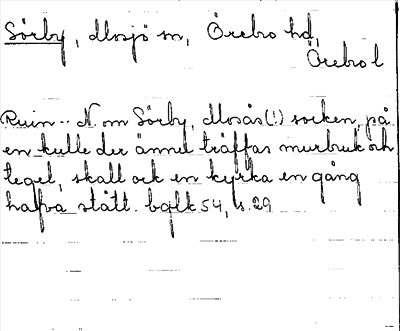 Sörby, Mosjö sn, Örebro hd,
Örebro l
Ruin.. N om Sörby, Mosås(!) socken, på
en kulle der ännu träffas murbruk och
tegel, skall ock en kyrka en gång
hafva stått. bqlk 54, s. 29